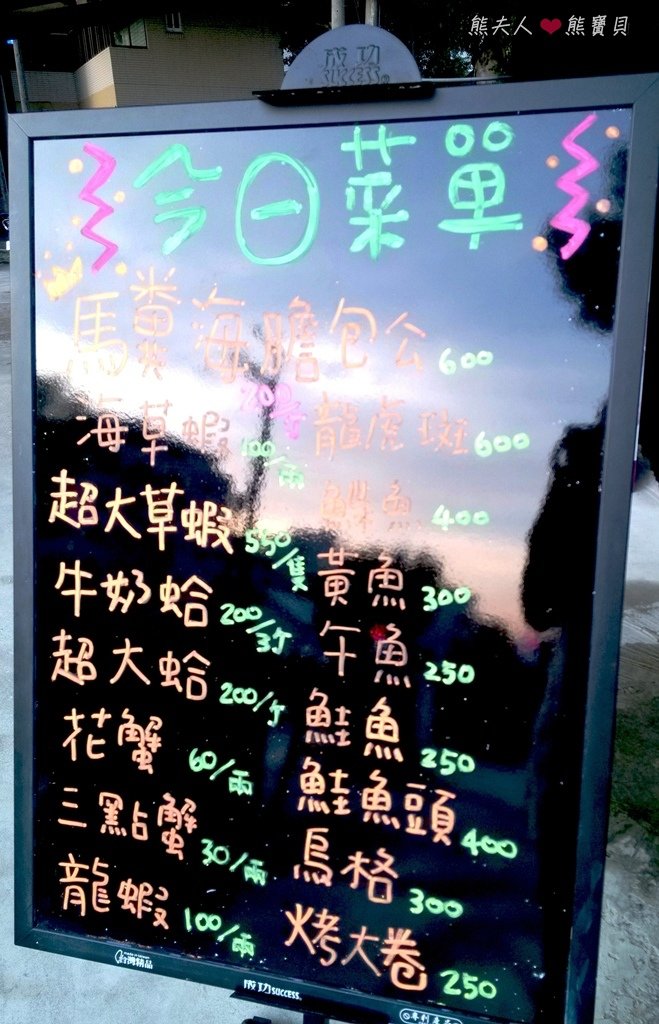 熊夫人❤熊寶貝
成功
SUCCESS®
今日菜單
馬糞海膽包公 600
海草蝦 100/兩
龍虎斑 600
400
超大草蝦 550/隻
黃魚 300
牛奶蛤 200/斤
午魚 250
超大蛤 200/斤
鮭魚 250
花蟹 60/兩
鮭魚頭 400
三點蟹 30/兩
烏格 300
龍蝦 100/兩
烤大卷 250
台灣精品
成功 SUCCESS